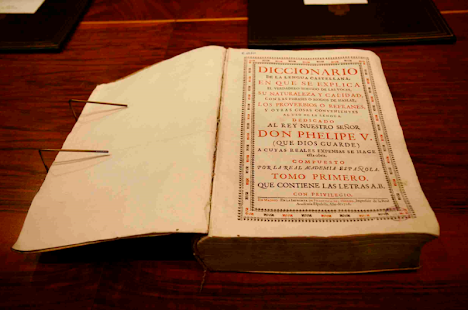 DICCIONARIO
DE LA LENGUA CASTELLANA,
EN QUE SE EXPLICA
EL VERDADERO SENTIDO DE LAS VOCES,
SU NATURALEZA Y CALIDAD,
CON LAS PHRASES O MODOS DE HABLAR,
LOS PROVERBIOS, O REFRANES,
Y OTRAS COSAS CONVENIENTES
AL USO DE LA LENGUA.
DEDICADO
AL REY NUESTRO SEÑOR
DON PHELIPE V.
(QUE DIOS GUARDE)
A CUYAS REALES EXPENSAS SE HACE
esta obra.
COMPUESTO
POR LA REAL ACADEMIA ESPAÑOLA.
TOMO PRIMERO.
QUE CONTIENE LAS LETRAS A.B.
CON PRIVILEGIO.